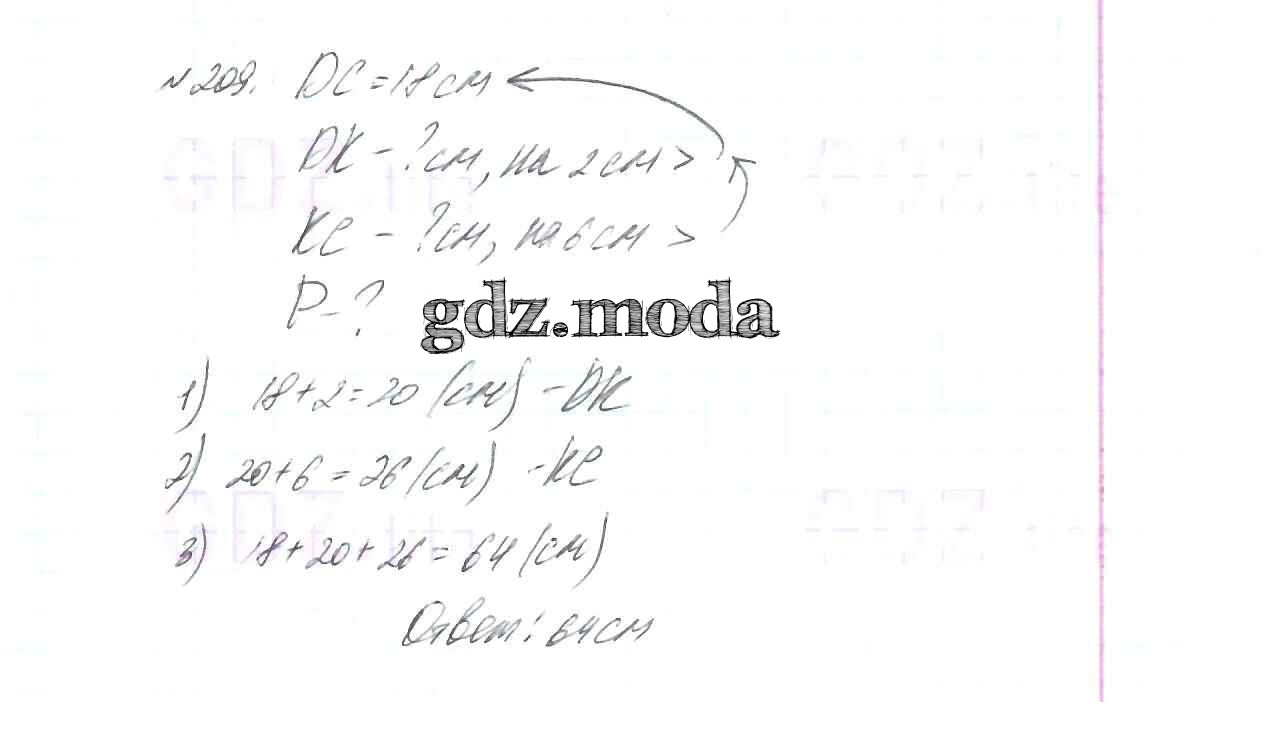 №209. DC = 18 см
DK – ? см, на 2 см >
KC – ? см, на 6 см >
P – ?
gdz.moda
1) 18 + 2 = 20 (см) – DK
2) 20 + 6 = 26 (см) – KC
3) 18 + 20 + 26 = 64 (см)
Ответ: 64 см